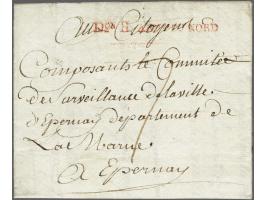 Aux Citoyens
NORD
Composants le Commitée
de Surveillance de la ville
d'Epernay departement de
La Marne
a Epernay